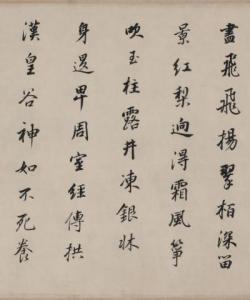 盡飛飛揚翠柏深留
景紅梨迥得霜風箏
吹玉柱露井凍銀牀
身退卑周室經傳拱
漢皇谷神如不死養